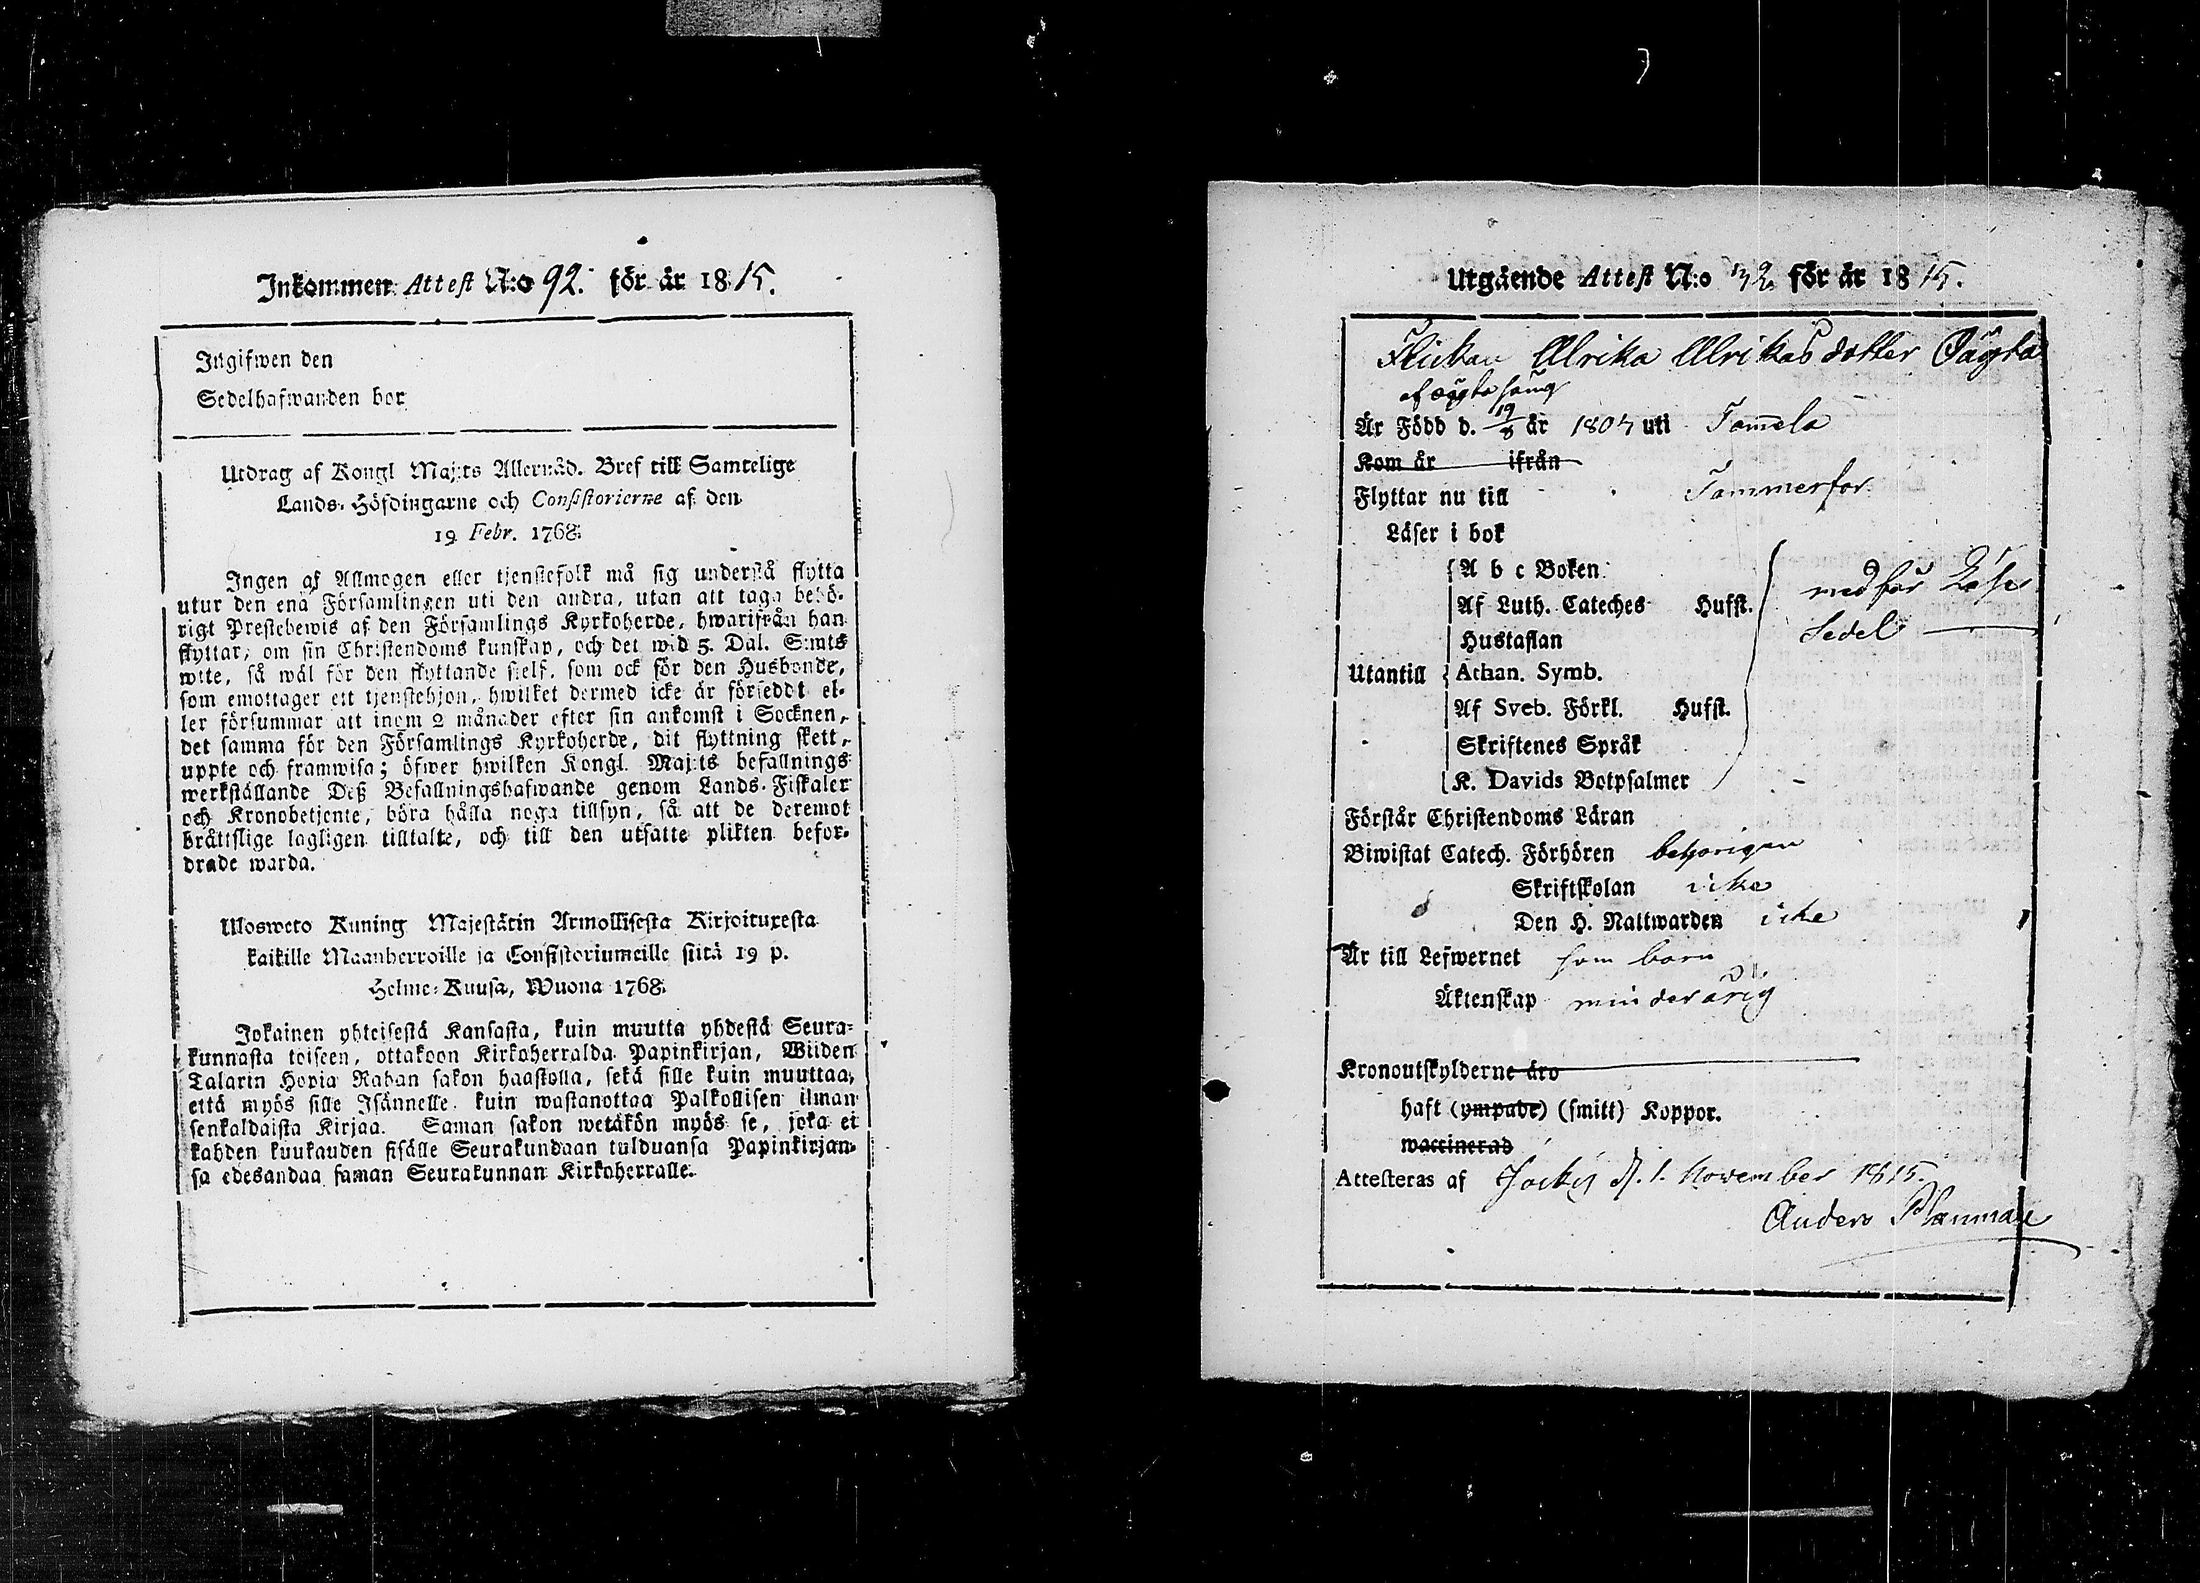 Inkommen Attest N:o 92. för år 1815.
Ingifwen den
Sedelhafwanden bor
Utdrag af Kongl Maj:ts Allernåd. Bref till Samtelige
Lands-Höfdingarne och Consistorierne af den
19 Febr. 1768.
Ingen af Allmogen eller tjenstefolk må sig understå flytta
utur den ena Församlingen uti den andra, utan att taga behö-
rigt Prestebewis af den Församlings Kyrkoherde, hwarifrån han
flyttar, om sin Christendoms kunskap, och det wid 5. Dal. S:mts
wite, så wäl för den flyttande sielf, som ock för den Husbonde,
som emottager ett tjenstehjon, hwilket dermed icke är förseddt el-
ler försummar att inom 2 månader efter sin ankomst i Socknen,
det samma för den Församlings Kyrkoherde, dit flyttning skett,
uppte och framwisa; öfwer hwilken Kongl. Maj:ts befallnings
werkställande Deß Befallningshafwande genom Lands-Fiskaler
och Kronobetjente, böra hålla noga tillsyn, så att de deremot
bråttslige lagligen tilltalte, och till den utsatte plikten befor-
drade warda.
Ulosweto Kuning Majestätin Armollisesta Kirjoituxesta
kaikille Maanherroille ja Consistoriumeille siitä 19 p.
Helme-Kuusa, Wuona 1768.
Jokainen yhteisestä Kansasta, kuin muutta yhdestä Seura-
kunnasta toiseen, ottakoon Kirkoherralda Papinkirjan, Wiiden
Talarin Hopia Rahan sakon haastolla, sekä sille kuin muuttaa,
että myös sille Isännelle, kuin wastanottaa Palkollisen ilman
senkaldaista Kirjaa. Saman sakon wetäkön myös se, joka ei
kahden kuukauden sisälle Seurakundaan tulduansa Papinkirjan-
sa edesandaa saman Seurakunnan Kirkoherralle.
Utgående Attest N:o 32 för år 1815.
Flickan Ulrika Ulrikasdotter Oägta
af oägta säng
Är Född d. 19/8 år 1804 uti Tammela
Kom år ifrån
Flyttar nu till Tammerfor
Läser i bok
A b c Boken
Af Luth. Cateches Hufst. medför Läse
Hustaflan Sedel
Utantill Athan. Symb.
Af Sveb. Förkl. Hufst.
Skriftenes Språk
K. Davids Botpsalmer
Förstår Christendoms Läran
Biwistat Catech. Förhören behörigen
Skriftskolan icke
Den H. Nattwarden icke
Är till Lefwernet som barn
Äktenskap minderårig
Kronoutskylderne äro
haft (ympade) (smitt) Koppor.
waccinerad
Attesteras af Jockis d. 1. November 1815.
Anders Planman